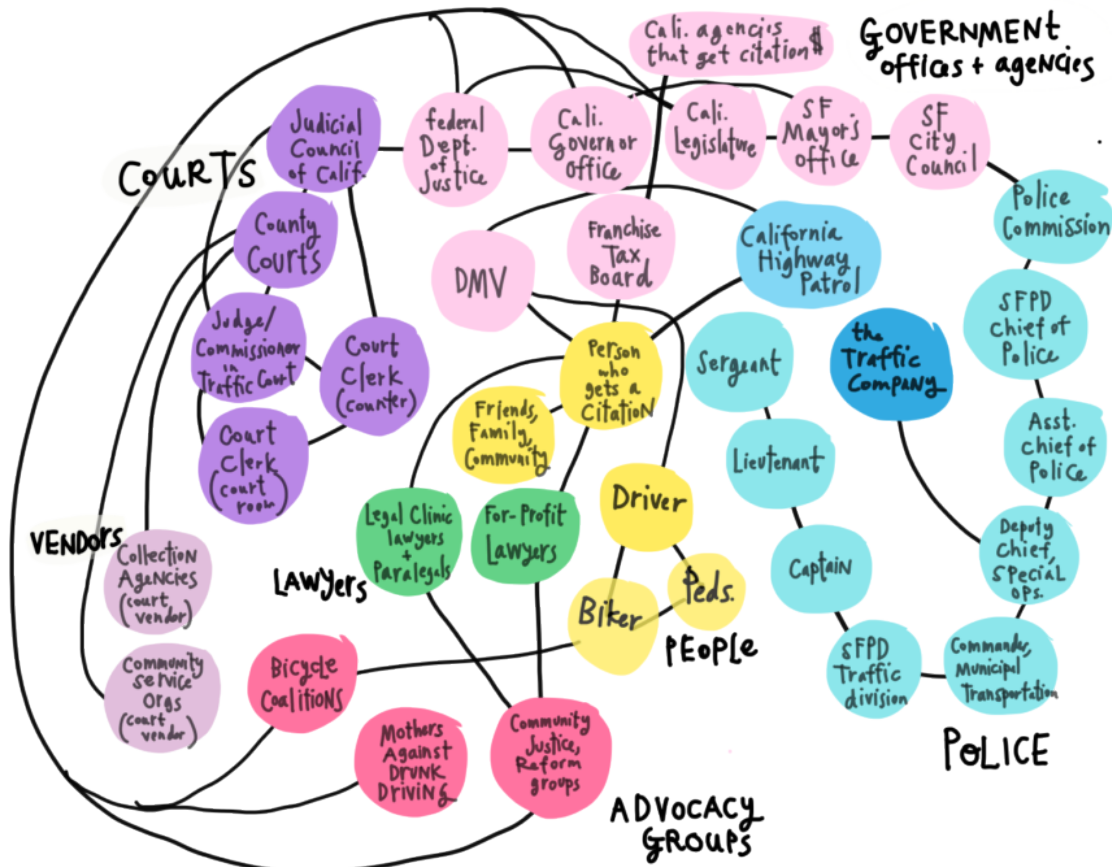 Cali. agencies
that get citation $
GOVERNMENT
offices + agencies
Judicial
Council
of Calif.
federal
Dept.
of
Justice
Cali.
Governor
Office
Cali.
Legislature
SF
Mayor's
Office
SF
City
Council
COURTS
Police
Commission
County
Courts
DMV
Franchise
Tax
Board
California
Highway
Patrol
SFPD
Chief of
Police
Judge/
Commissioner
in
Traffic Court
Court
Clerk
(counter)
Person
who
gets a
Citation
Sergeant
the
Traffic
Company
Friends,
Family,
Community
Asst.
Chief of
Police
Court
Clerk
(court
room)
Lieutenant
Driver
VENDORS
Collection
Agencies
(court
vendor)
Legal Clinic
lawyers
+
Paralegals
For-Profit
Lawyers
Deputy
Chief,
Special
Ops.
LAWyers
Captain
Biker
Peds.
PEOPLe
Community
Service
Orgs
(court
vendor)
Bicycle
Coalitions
SFPD
Traffic
division
Commander,
Municipal
Transportation
Mothers
Against
Drunk
Driving
Community
Justice,
Reform
groups
POLICE
ADVOCACY
GROUPS